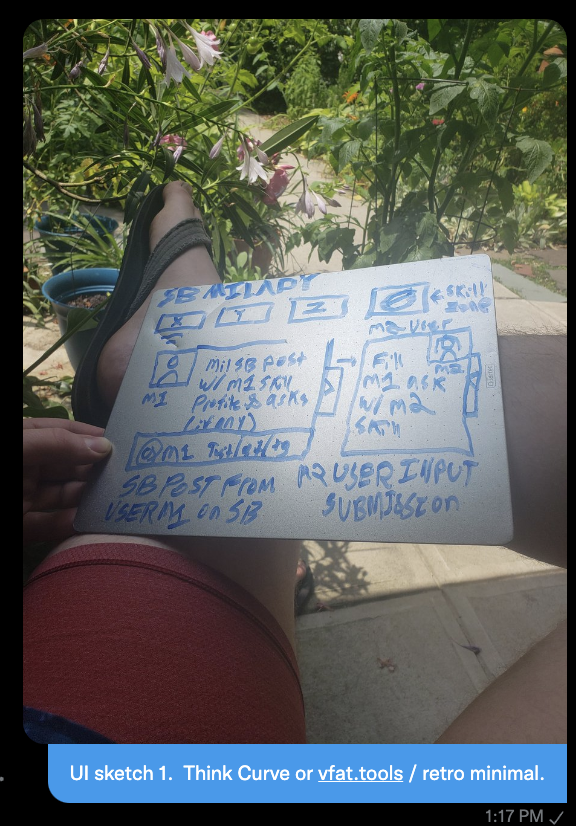 SB MILADY
X Y Z
← SKill
Zone
M2 User
M1
Mil SB post
w/ M1 SKill
Profile & asks
(if any)
@M1
SB POST FROM
USER M1 on SB
Fill
M1 ask
w/ M2
SKill
M2
M2 USER INPUT
SUBMISSION
UI sketch 1. Think Curve or vfat.tools / retro minimal.
1:17 PM